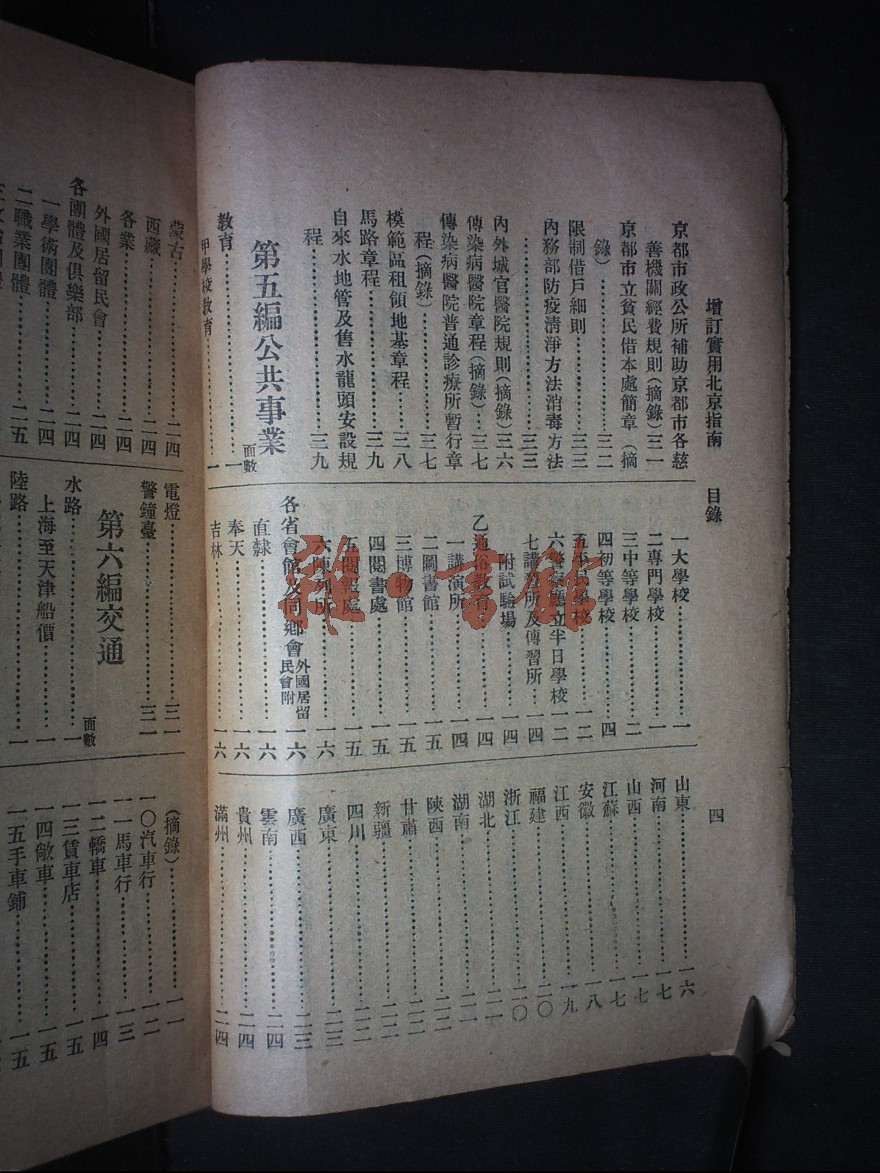 增訂實用北京指南 目錄 四
京都市政公所補助京都市各慈
善機關經費規則(摘錄)三一
京都市立貧民借本處簡章(摘
錄)……三二
限制借戶細則……三三
內務部防疫清淨方法消毒方法
……三三
內外城官醫院規則(摘錄)三六
傳染病醫院章程(摘錄)…三七
傳染病醫院普通診療所暫行章
程(摘錄)……三七
模範區租領地基章程……三八
馬路章程……三九
自來水地管及售水龍頭安設規
程……三九
第五編公共事業 面數
教育……一
甲學校教育……一
一大學校……一
二專門學校……一
三中等學校……二
四初等學校……四
五平民學校……一二
六警察廳立半日學校……一二
七講習所及傳習所……一四
附試驗場……一四
乙通俗教育……一四
一講演所……一四
二圖書館……一五
三博物館……一五
四閱書處……一五
五閱報處……一五
六陳列所……一六
各省會館及同鄉會外國居留民會附……一六
直隸……一六
奉天……一六
吉林……一六
山東……一六
河南……一七
山西……一七
江蘇……一七
安徽……一八
江西……一九
福建……二〇
浙江……二〇
湖北……二一
湖南……二一
陝西……二二
甘肅……二二
新疆……二二
四川……二二
廣東……二三
廣西……二三
雲南……二四
貴州……二四
滿州……二四
蒙古……二四
西藏……二四
各業……二四
外國居留民會……二四
各團體及俱樂部……二四
一學術團體……二四
二職業團體……二五
電燈……三一
警鐘臺……三一
第六編交通 面數
水路……一
上海至天津船價……一
陸路……一
(摘錄)……一一
一〇汽車行……一二
一一馬車行……一三
一二轎車……一四
一三賃車店……一五
一四敞車……一五
一五手車鋪……一五